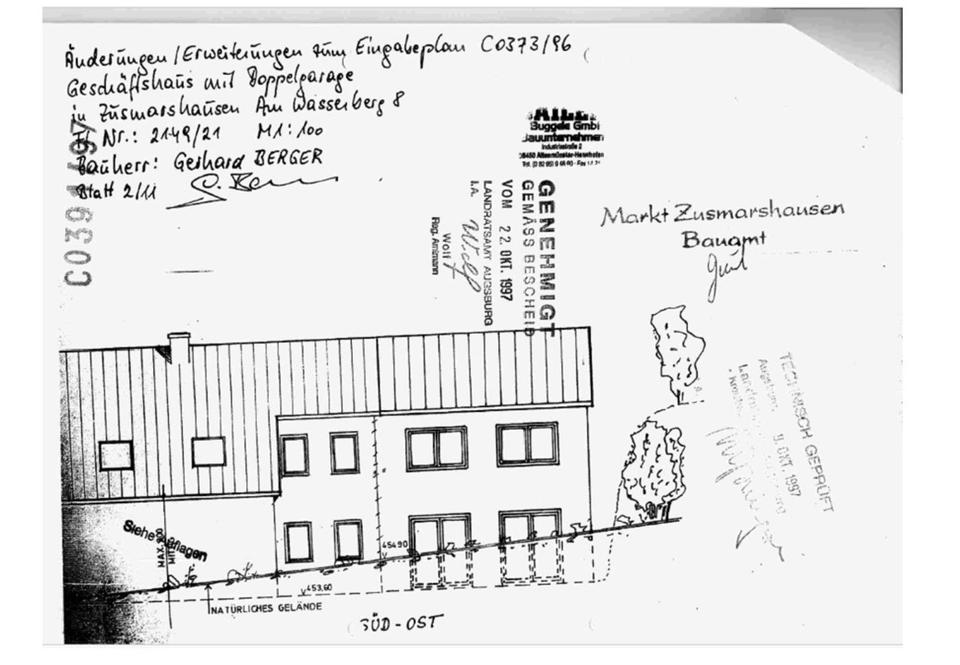 Änderungen/Erweiterungen zum Eingabeplan C0373/96
Geschäftshaus mit Doppelgarage
in Zusmarshausen Am Wasserberg 8
Fl. Nr.: 2149/21 M1:100
Bauherr: Gerhard BERGER
Blatt 2/11
C0391/97
Buggele GmbH
Bauunternehmen
Industriestraße 2
GENEHMIGT
GEMÄSS BESCHEID
VOM 22. OKT. 1997
LANDRATSAMT AUGSBURG
I.A.
Wolf
Reg. Amtmann
Markt Zusmarshausen
Bauamt
TECHNISCH GEPRÜFT
OKT. 1997
Siehe Auflagen
MAX.
454.90
453.60
NATÜRLICHES GELÄNDE
SÜD-OST